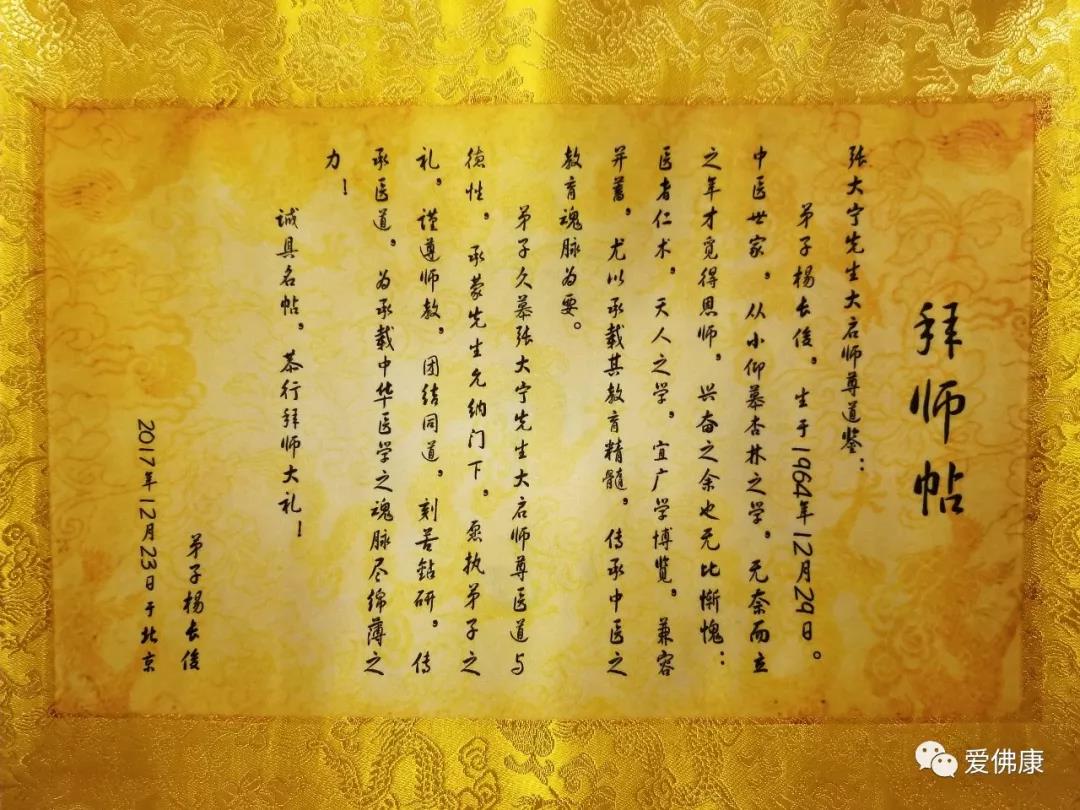 拜师帖
张大宁先生大启师尊道鉴：
弟子杨长俊，生于1964年12月29日。
中医世家，从小仰慕杏林之学，无奈而立
之年才觅得恩师，兴奋之余也无比惭愧：
医者仁术，天人之学，宜广学博览，兼容
并蓄，尤以承载其教育精髓，传承中医之
教育魂脉为要。
弟子久慕张大宁先生大启师尊医道与
德性，承蒙先生允纳门下，愿执弟子之
礼，谨尊师教，团结同道，刻苦钻研，传
承医道，为承载中华医学之魂脉尽绵薄之
力！
诚具名帖，恭行拜师大礼！
弟子杨长俊
2017年12月23日于北京
爱佛康